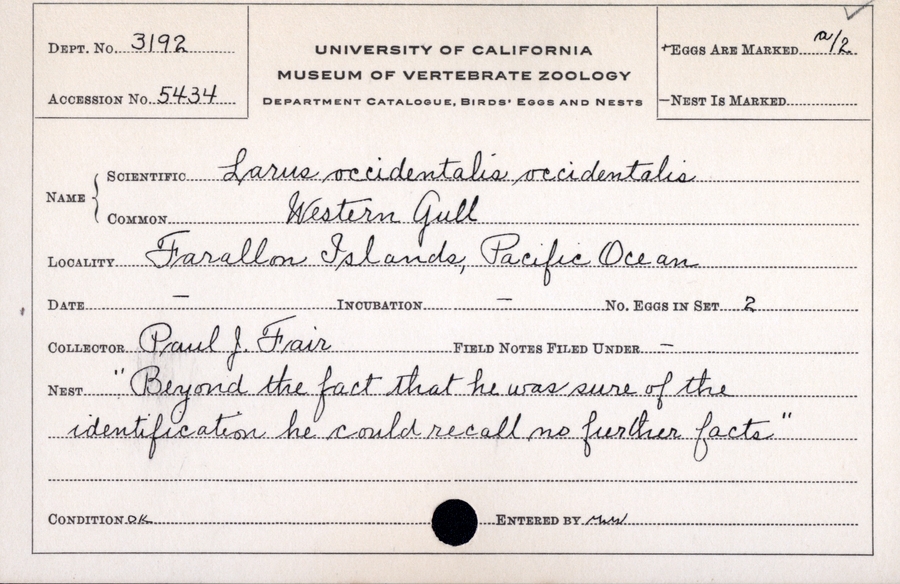 DEPT. NO. 3192
ACCESSION NO. 5434
UNIVERSITY OF CALIFORNIA
MUSEUM OF VERTEBRATE ZOOLOGY
DEPARTMENT CATALOGUE, BIRDS' EGGS AND NESTS
+EGGS ARE MARKED a/2
—NEST IS MARKED
NAME
SCIENTIFIC Larus occidentalis occidentalis
COMMON Western Gull
LOCALITY Farallon Islands, Pacific Ocean
DATE — INCUBATION — NO. EGGS IN SET 2
COLLECTOR Paul J. Fair FIELD NOTES FILED UNDER —
NEST "Beyond the fact that he was sure of the
identification he could recall no further facts"
CONDITION OK ENTERED BY